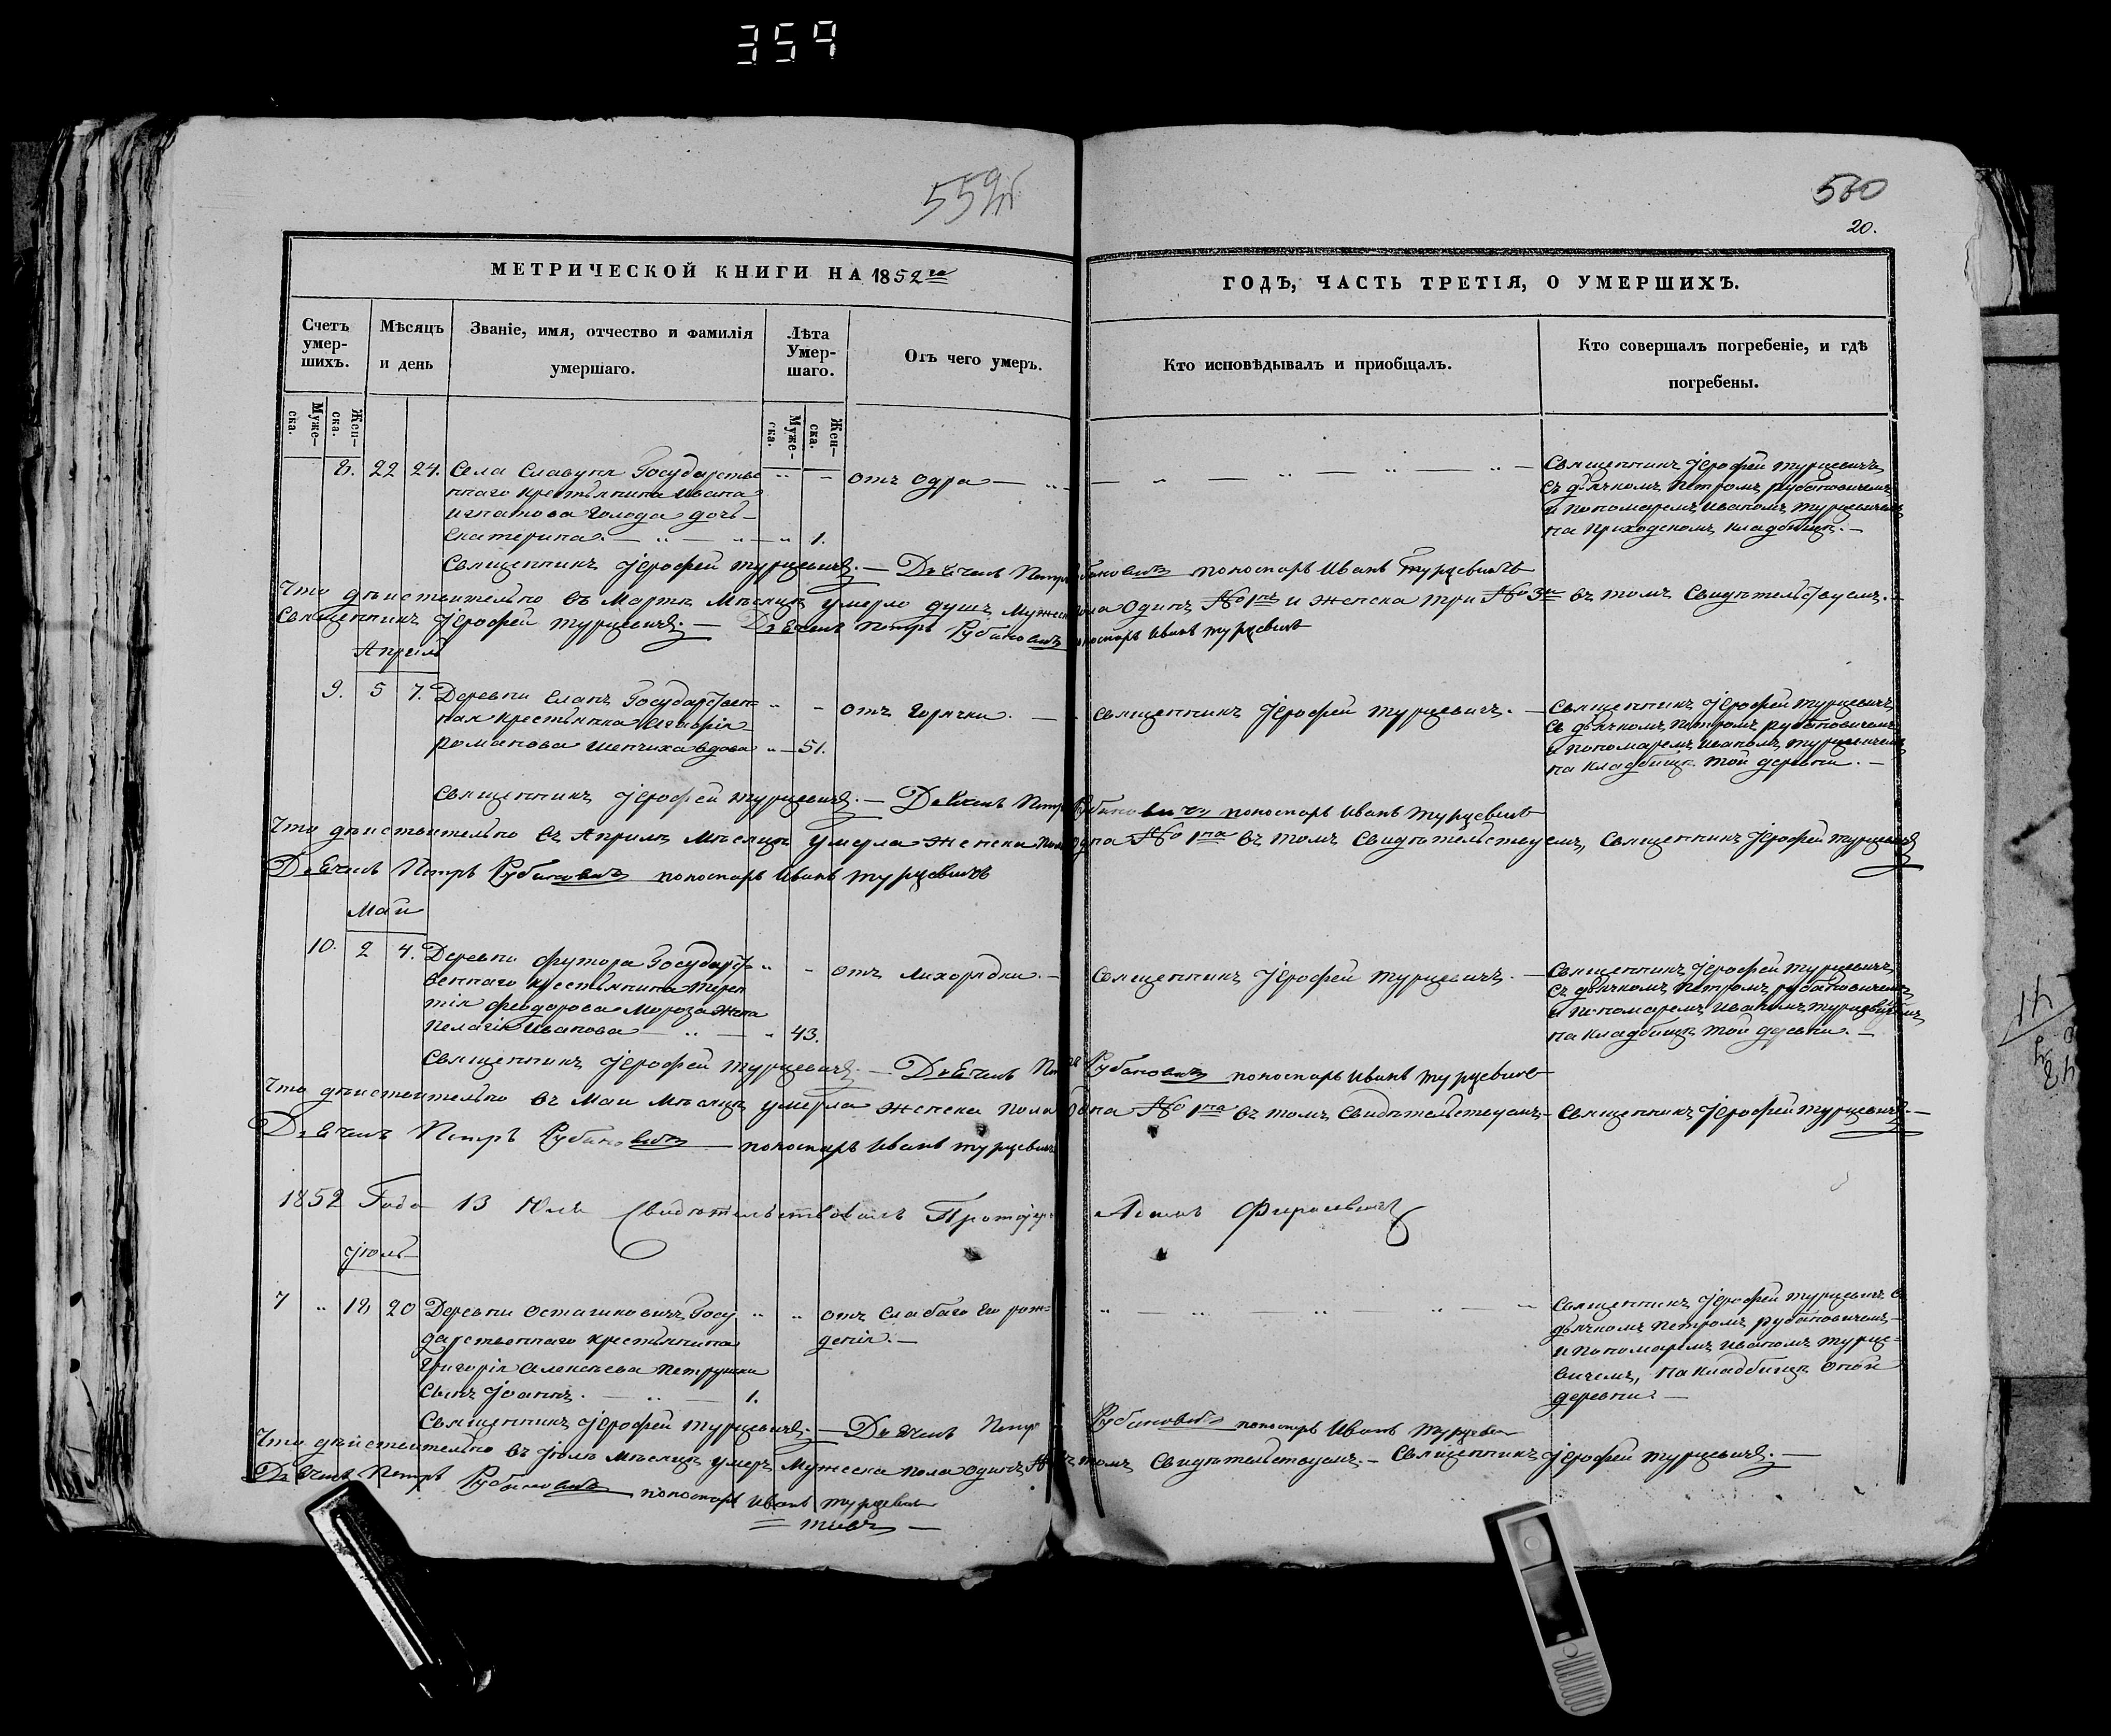 359
559
560
20.
МЕТРИЧЕСКОЙ КНИГИ НА 1852го
ГОДЪ, ЧАСТЬ ТРЕТІЯ, О УМЕРШИХЪ.
Счетъ умер-шихъ.
Мѣсяцъ и день
Званіе, имя, отчество и фамилія умершаго.
Лѣта Умер-шаго.
Отъ чего умеръ.
Кто исповѣдывалъ и приобщалъ.
Кто совершалъ погребеніе, и гдѣ погребены.
Муже-ска.
Жен-ска.
Муже-ска.
Жен-ска.
8. 22 24. Села Славуня Государстве
ннаго крестьянина Ивана
Игнатова Голода дочь
Екатерина. 1.
отъ одра
Священникъ Іерофей Турцевичъ
съ дьячкомъ Петромъ Рубановичемъ
и пономаремъ Иваномъ Турцевичемъ
на приходскомъ кладбищѣ.
Священникъ Іерофей Турцевичъ. — Дьячекъ Петръ Рубановичъ пономарь Иванъ Турцевичъ
Что дѣйствительно въ Мартѣ мѣсяцѣ умерло душъ мужеска пола одинъ № 1нъ и женска три № 3и въ томъ свидѣтельствуемъ.
Священникъ Іерофей Турцевичъ. — Дьячекъ Петръ Рубановичъ пономарь Иванъ Турцевичъ
Апрѣль
9. 5 7. Деревни Еланъ Государствен
ная крестьянка
Романова вдова 51.
отъ горячки.
Священникъ Іерофей Турцевичъ.
Священникъ Іерофей Турцевичъ
съ дьячкомъ Петромъ Рубановичемъ
и пономаремъ Иваномъ Турцевичемъ
на кладбищѣ той деревни.
Священникъ Іерофей Турцевичъ. — Дьячекъ Петръ Рубановичъ пономарь Иванъ Турцевичъ
Что дѣйствительно въ Апрѣлѣ мѣсяцѣ умерла женска пола одна № 1на въ томъ свидѣтельствуемъ, Священникъ Іерофей Турцевичъ
Дьячекъ Петръ Рубановичъ пономарь Иванъ Турцевичъ
Май
10. 2 4. Деревни Футора Государст
веннаго крестьянина Терен
тія Феодорова Мороза жена
Пелагія Иванова 43.
отъ лихорядки.
Священникъ Іерофей Турцевичъ.
Священникъ Іерофей Турцевичъ
съ дьячкомъ Петромъ Рубановичемъ
и пономаремъ Иваномъ Турцевичемъ,
на кладбищѣ той деревни.
Священникъ Іерофей Турцевичъ. — Дьячекъ Петръ Рубановичъ пономарь Иванъ Турцевичъ
Что дѣйствительно въ Маи мѣсяцѣ умерла женска пола одна № 1на въ томъ свидѣтельствуемъ. Священникъ Іерофей Турцевичъ.
Дьячекъ Петръ Рубановичъ — пономарь Иванъ Турцевичъ
1852 Года 13 Юля Свидѣтельствовалъ Протоіер Адамъ
Іюль
7 18 20 Деревни Осташковичъ Госу
дарственнаго крестьянина
Григорія Алексѣева Петрушки
сынъ Іоаннъ. 1.
отъ слабаго его рож-
денія.
Священникъ Іерофей Турцевичъ с
дьячкомъ Петромъ Рубановичемъ
и пономаремъ Иваномъ Турце-
вичемъ, на кладбищѣ оной
деревни.
Священникъ Іерофей Турцевичъ. — Дьячекъ Петръ Рубановичъ пономарь Иванъ Турцевич
Что дѣйствительно въ Іюлѣ мѣсяцѣ умеръ мужеска пола одинъ въ томъ свидѣтельствуемъ. — Священникъ Іерофей Турцевичъ.
Дьячекъ Петръ Рубановичъ пономарь Иванъ Турцевич